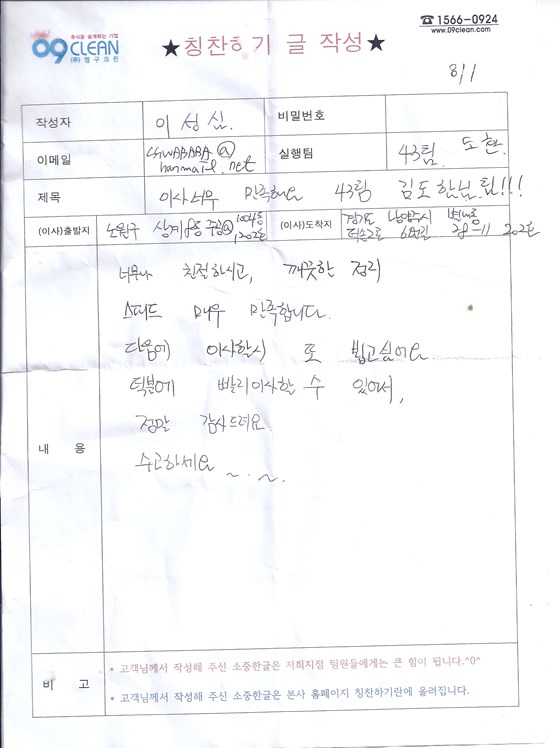 휴식을 설계하는 기업
09 CLEAN
(주)영구크린
★칭찬하기 글 작성★
☎ 1566-0924
www.09clean.com
8/1
작성자 이성심. 비밀번호
이메일 hanmail.net 실행팀 43팀. 도한.
제목 이사너무 만족해요 43팀 김도한님 팀!!!
(이사)출발지 노원구 상계8동 주공@ 1004동 1202호
(이사)도착지 경기도 남양주시 별내동 덕송2로 6번길 28-11 202호
너무나 친절하시고, 깨끗한 정리
스피드 매우 만족합니다.
다음에 이사할시 또 뵙고싶어요
덕분에 빨리이사할 수 있어서,
정말 감사드려요.
내 용
수고하세요 ~.~.
비 고
• 고객님께서 작성해 주신 소중한글은 저희지점 팀원들에게는 큰 힘이 됩니다.^0^
• 고객님께서 작성해 주신 소중한글은 본사 홈페이지 칭찬하기란에 올려집니다.